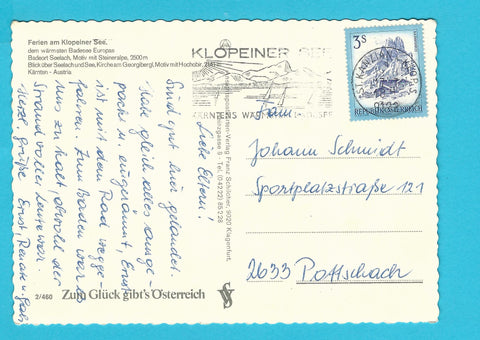 Ferien am Klopeiner See,
dem wärmsten Badesee Europas
Badeort Seelach, Motiv mit Steineralpe, 2500 m
Blick über Seelach und See, Kirche am Georgibergl, Motiv mit Hochobir,
Kärnten - Austria
Liebe Eltern!
Sind gut hier gelandet.
Habe gleich alles ausge-
packt u. ausgeräumt, Ernst
ist mit dem Rad wegge-
fahren. Zum Baden war es
uns zu kalt, obwohl der
Strand voller Leute war.
Herzl. Grüße Ernst, Renate u. Gabi
2/460
Zum Glück gibt's Österreich
Ansichtskarten-Verlag Franz Schilcher, 9020 Klagenfurt,
Tel. (04222) 85 2 28
KLOPEINER SEE
KÄRNTENS WÄRMSTER
3S
REPUBLIK ÖSTERREICH
9122
Fam.
Johann Schmidt
Sportplatzstraße 121
2633 Pottschach